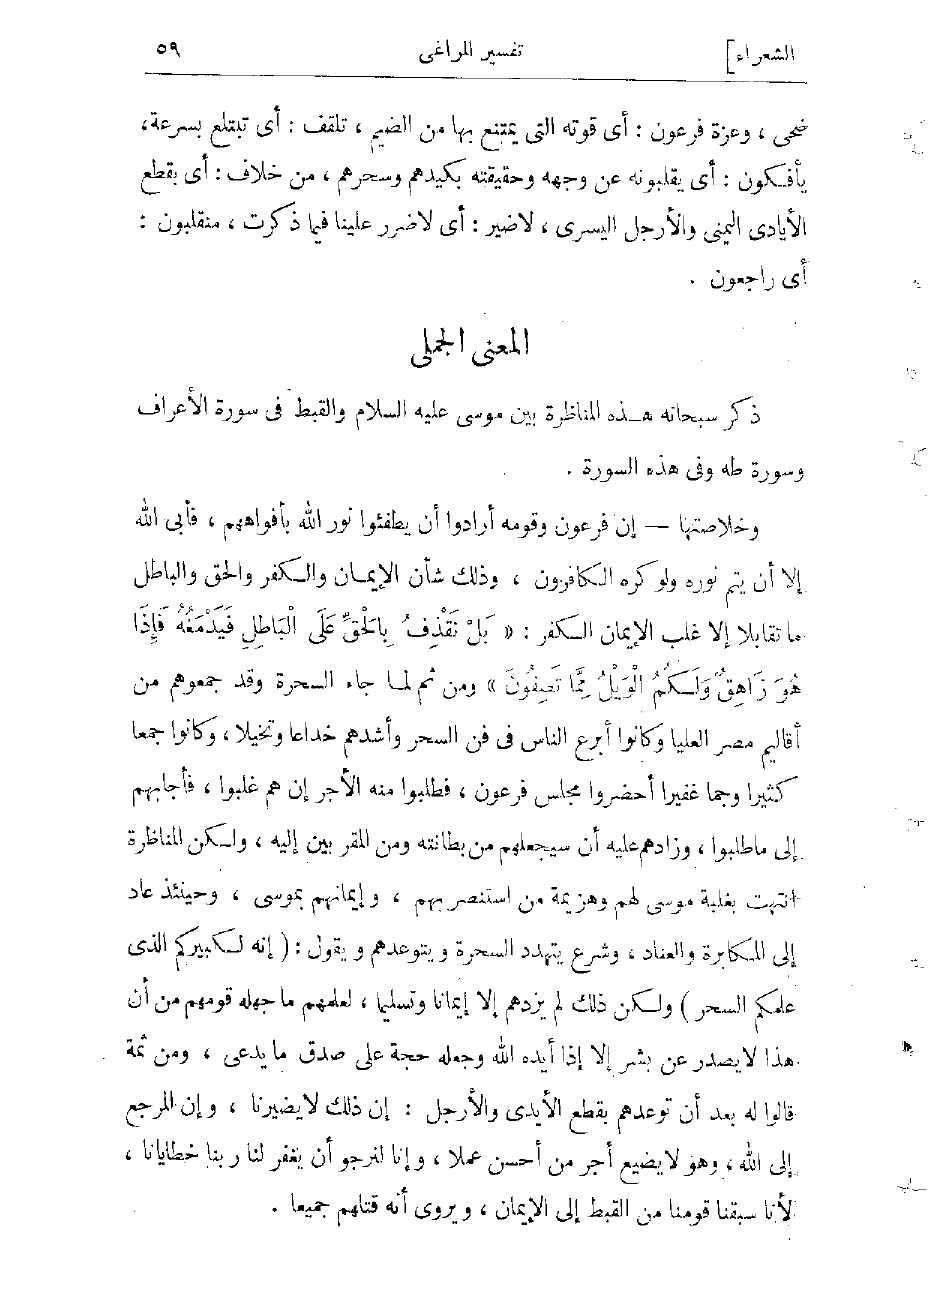 الشعراء] تفسير المراغى ٥٩
ضحى ، وعزة فرعون : أى قوته التى يمتنع بها من الضيم ، تلقف : أى تبتلع بسرعة،
يأفكون : أى يقلبونه عن وجهه وحقيقته بكيدهم وسحرهم ، من خلاف : أى بقطع
الأيادى اليمنى والأرجل اليسرى ، لاضير : أى لاضرر علينا فيما ذكرت ، منقلبون :
أى راجعون .
المعنى الجملى
ذكر سبحانه هذه المناظرة بين موسى عليه السلام والقبط فى سورة الأعراف
وسورة طه وفى هذه السورة .
وخلاصتها — إن فرعون وقومه أرادوا أن يطفئوا نور الله بأفواههم ، فأبى الله
إلا أن يتم نوره ولو كره الكافرون ، وذلك شأن الإيمان والكفر والحق والباطل
ما تقابلا إلا غلب الإيمان الكفر : « بَلْ نَقْذِفُ بِالْحَقِّ عَلَى الْبَاطِلِ فَيَدْمَغُهُ فَإِذَا
هُوَ زَاهِقٌ وَلَكُمُ الْوَيْلُ مِمَّا تَصِفُونَ » ومن ثم لما جاء السحرة وقد جمعوهم من
أقاليم مصر العليا وكانوا أبرع الناس فى فن السحر وأشدهم خداعا وتخيلا ، وكانوا جمعا
كثيرا وجما غفيرا أحضروا مجلس فرعون ، فطلبوا منه الأجر إن هم غلبوا ، فأجابهم
إلى ماطلبوا ، وزادهم عليه أن سيجعلهم من بطانته ومن المقر بين إليه ، ولكن المناظرة
انتهت بغلبة موسى لهم وهزيمة من استنصر بهم ، وإيمانهم بموسى ، وحينئذ عاد
إلى المكابرة والعناد ، وشرع يتهدد السحرة ويتوعدهم ويقول : ( إنه لكبيركم الذى
علمكم السحر ) ولكن ذلك لم يزدهم إلا إيمانا وتسليما ، لعلمهم ما جهله قومهم من أن
هذا لايصدر عن بشر إلا إذا أيده الله وجعله حجة على صدق مايدعى ، ومن ثمة
قالوا له بعد أن توعدهم بقطع الأيدى والأرجل : إن ذلك لايضيرنا ، وإن المرجع
إلى الله ، وهو لايضيع أجر من أحسن عملا ، وإنا لنرجو أن يغفر لنا ربنا خطايانا ،
لأنا سبقنا قومنا من القبط إلى الإيمان ، ويروى أنه قتلهم جميعا .